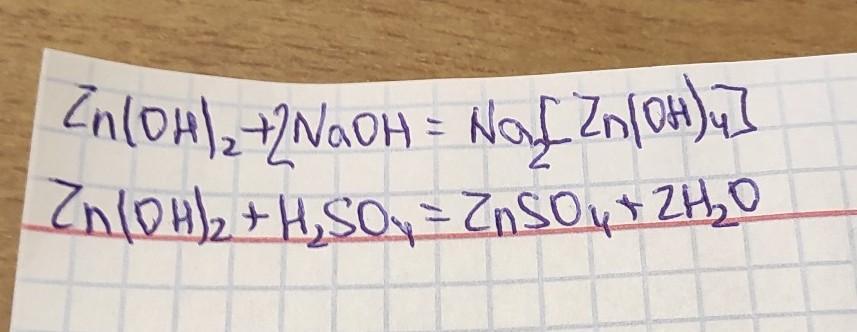 Zn(OH)₂+2NaOH = Na₂[Zn(OH)₄]
Zn(OH)₂+H₂SO₄=ZnSO₄+2H₂O